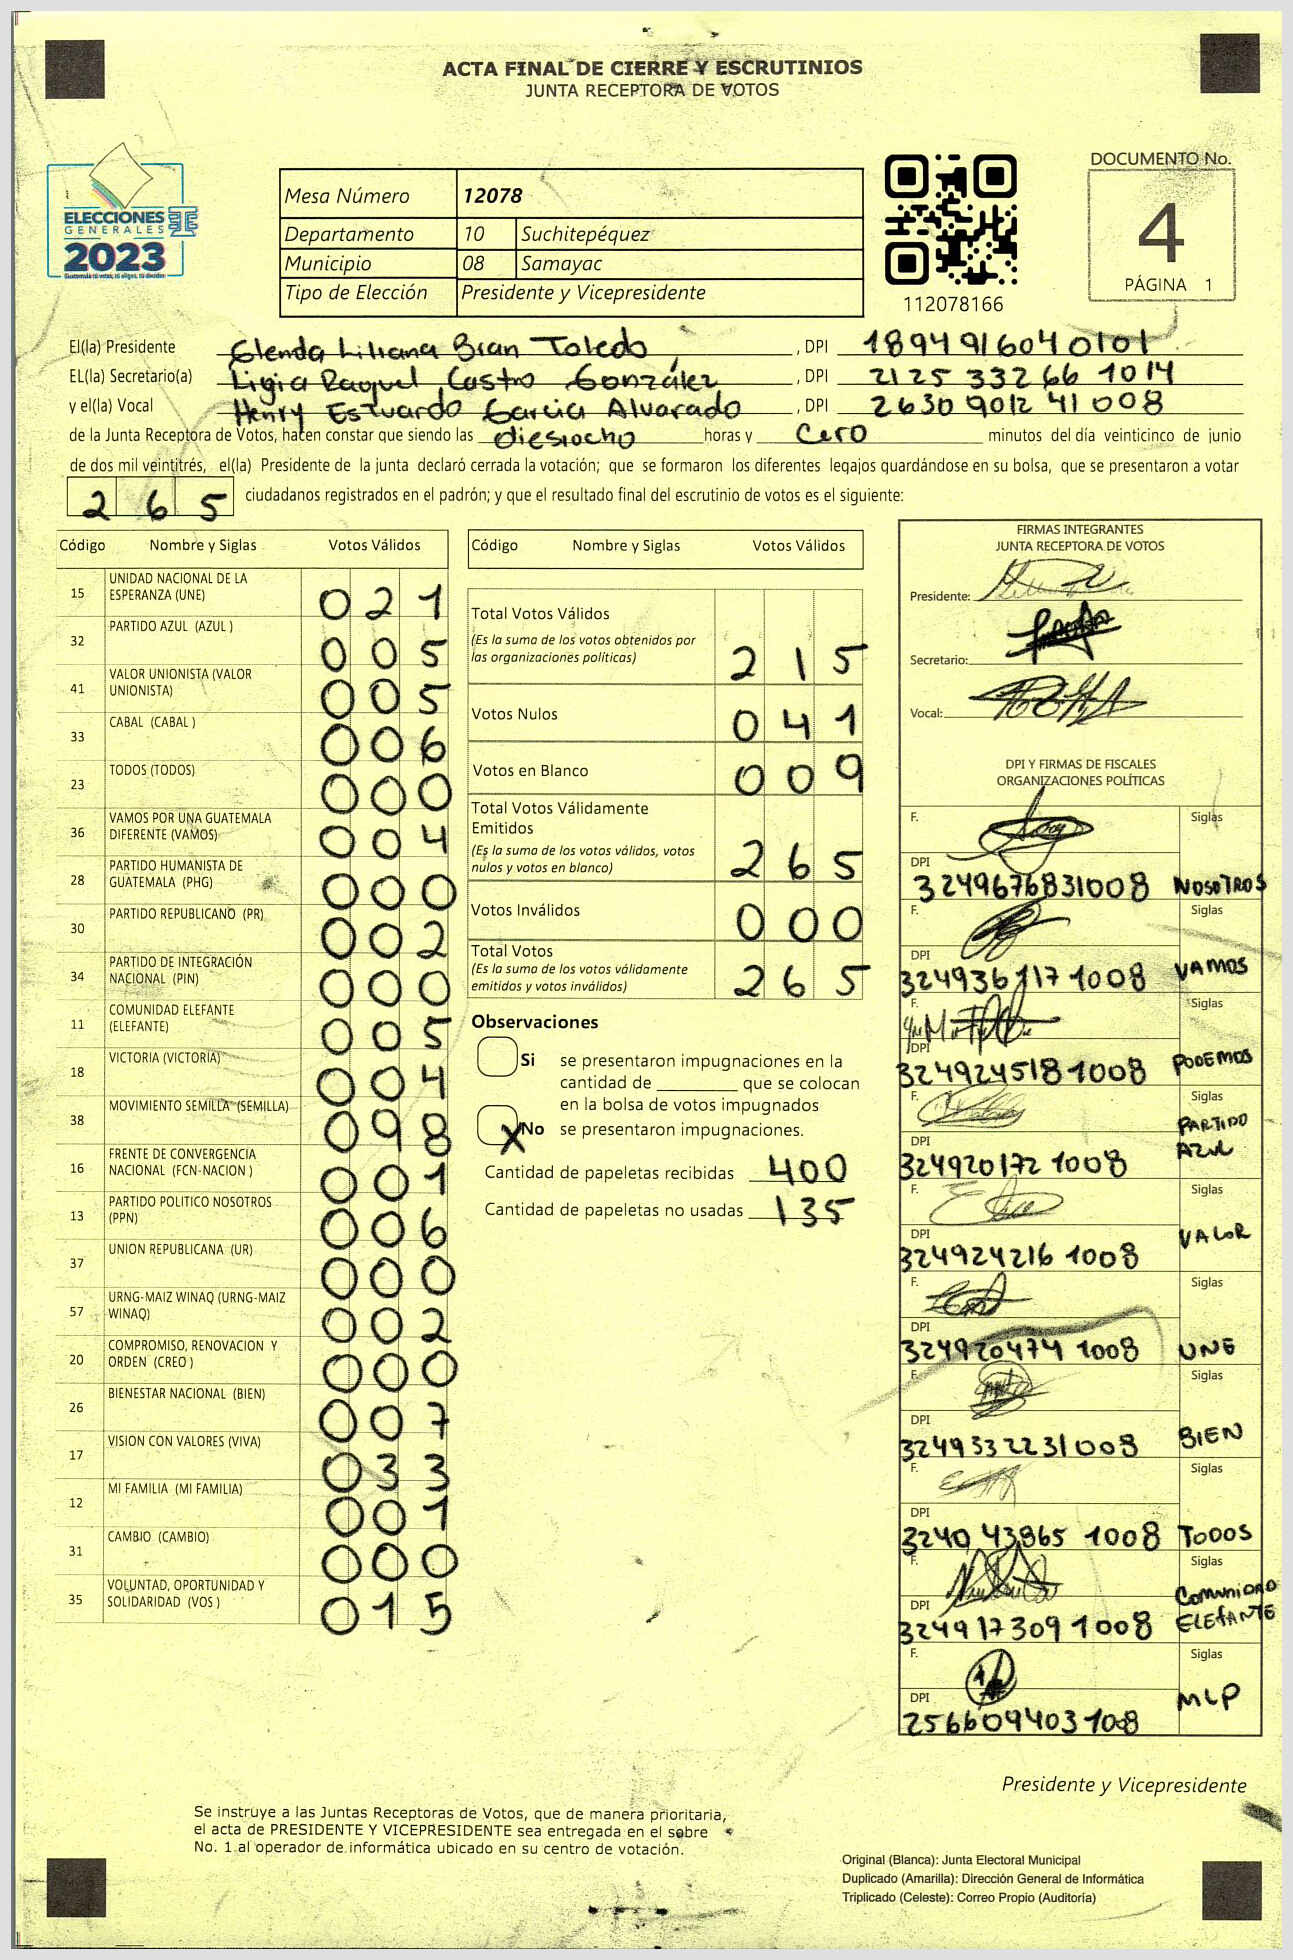 ACTA FINAL DE CIERRE Y ESCRUTINIOS
JUNTA RECEPTORA DE VOTOS
ELECCIONES
GENERALES
2023
Mesa Número 12078
Departamento 10 Suchitepéquez
Municipio 08 Samayac
Tipo de Elección Presidente y Vicepresidente
112078166
DOCUMENTO No.
4
PÁGINA 1
El(la) Presidente Glenda Liliana Bran Toledo, DPI 1894916040101
EL(la) Secretario(a) Ligia Raquel Castro González, DPI 2125 33266 1014
y el(la) Vocal Henry Estuardo Garcia Alvarado, DPI 26309012 41008
de la Junta Receptora de Votos, hacen constar que siendo las diesiocho horas y cero minutos del día veinticinco de junio
de dos mil veintitrés, el(la) Presidente de la junta declaró cerrada la votación; que se formaron los diferentes legajos quardándose en su bolsa, que se presentaron a votar
265 ciudadanos registrados en el padrón; y que el resultado final del escrutinio de votos es el siguiente:
Código Nombre y Siglas Votos Válidos
15 UNIDAD NACIONAL DE LA ESPERANZA (UNE) 021
32 PARTIDO AZUL (AZUL ) 005
41 VALOR UNIONISTA (VALOR UNIONISTA) 005
33 CABAL (CABAL ) 006
23 TODOS (TODOS) 000
36 VAMOS POR UNA GUATEMALA DIFERENTE (VAMOS) 004
28 PARTIDO HUMANISTA DE GUATEMALA (PHG) 000
30 PARTIDO REPUBLICANO (PR) 002
34 PARTIDO DE INTEGRACIÓN NACIONAL (PIN) 000
11 COMUNIDAD ELEFANTE (ELEFANTE) 005
18 VICTORIA (VICTORIA) 004
38 MOVIMIENTO SEMILLA (SEMILLA) 098
16 FRENTE DE CONVERGENCIA NACIONAL (FCN-NACION ) 001
13 PARTIDO POLITICO NOSOTROS (PPN) 006
37 UNION REPUBLICANA (UR) 000
57 URNG-MAIZ WINAQ (URNG-MAIZ WINAQ) 002
20 COMPROMISO, RENOVACION Y ORDEN (CREO ) 000
26 BIENESTAR NACIONAL (BIEN) 007
17 VISION CON VALORES (VIVA) 033
12 MI FAMILIA (MI FAMILIA) 001
31 CAMBIO (CAMBIO) 000
35 VOLUNTAD, OPORTUNIDAD Y SOLIDARIDAD (VOS ) 015
Código Nombre y Siglas Votos Válidos
Total Votos Válidos 215
(Es la suma de los votos obtenidos por
las organizaciones políticas)
Votos Nulos 041
Votos en Blanco 009
Total Votos Válidamente
Emitidos 265
(Es la suma de los votos válidos, votos
nulos y votos en blanco)
Votos Inválidos 000
Total Votos 265
(Es la suma de los votos válidamente
emitidos y votos inválidos)
Observaciones
Si se presentaron impugnaciones en la
cantidad de ________ que se colocan
en la bolsa de votos impugnados
X No se presentaron impugnaciones.
Cantidad de papeletas recibidas 400
Cantidad de papeletas no usadas 135
FIRMAS INTEGRANTES
JUNTA RECEPTORA DE VOTOS
Presidente:
Secretario:
Vocal:
DPI Y FIRMAS DE FISCALES
ORGANIZACIONES POLÍTICAS
F. Siglas
DPI 3249676831008 NOSOTROS
F. Siglas
DPI 324936117 1008 VAMOS
F. Siglas
DPI 324924518 1008 PODEMOS
F. Siglas
DPI 324920172 1008 PARTIDO AZUL
F. Siglas
DPI 324924216 1008 VALOR
F. Siglas
DPI 324920474 1008 UNE
F. Siglas
DPI 3249332231008 BIEN
F. Siglas
DPI 3240 43865 1008 TODOS
F. Siglas
DPI 324917309 1008 COMUNIDAD ELEFANTE
F. Siglas
DPI 256609403 1008 MLP
Presidente y Vicepresidente
Se instruye a las Juntas Receptoras de Votos, que de manera prioritaria,
el acta de PRESIDENTE Y VICEPRESIDENTE sea entregada en el sobre
No. 1 al operador de informática ubicado en su centro de votación.
Original (Blanca): Junta Electoral Municipal
Duplicado (Amarilla): Dirección General de Informática
Triplicado (Celeste): Correo Propio (Auditoría)